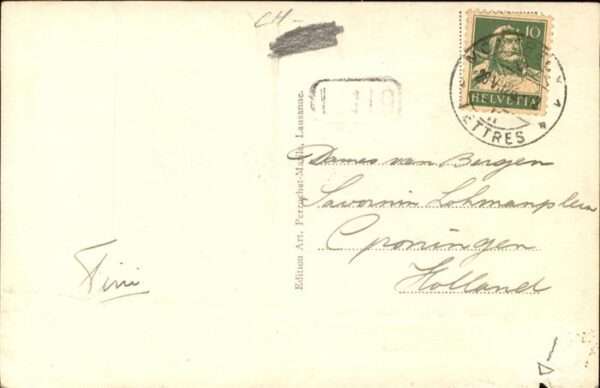 CH-
10
HELVETIA
LETTRES
Edition Art. Perrochet-Matile, Lausanne.
Dames van Bergen
Savornin Lohmanplein
Groningen
Holland